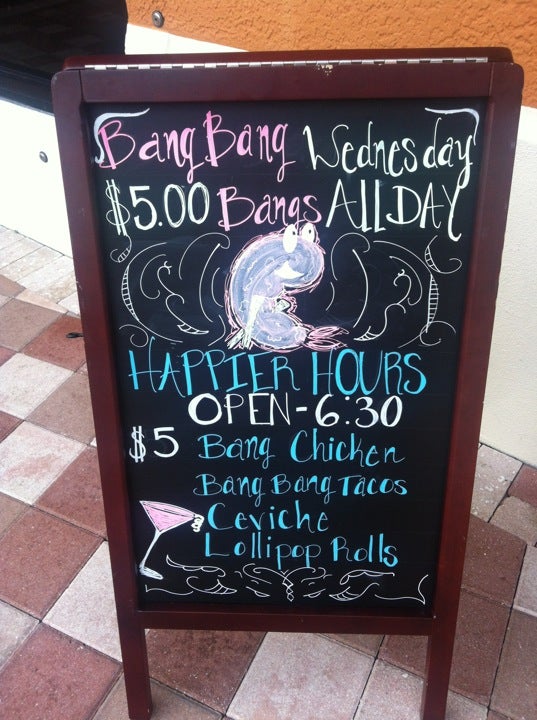 Bang Bang Wednesday
$5.00 Bangs ALL DAY
HAPPIER HOURS
OPEN-6:30
$5 Bang Chicken
Bang Bang Tacos
Ceviche
Lollipop Rolls